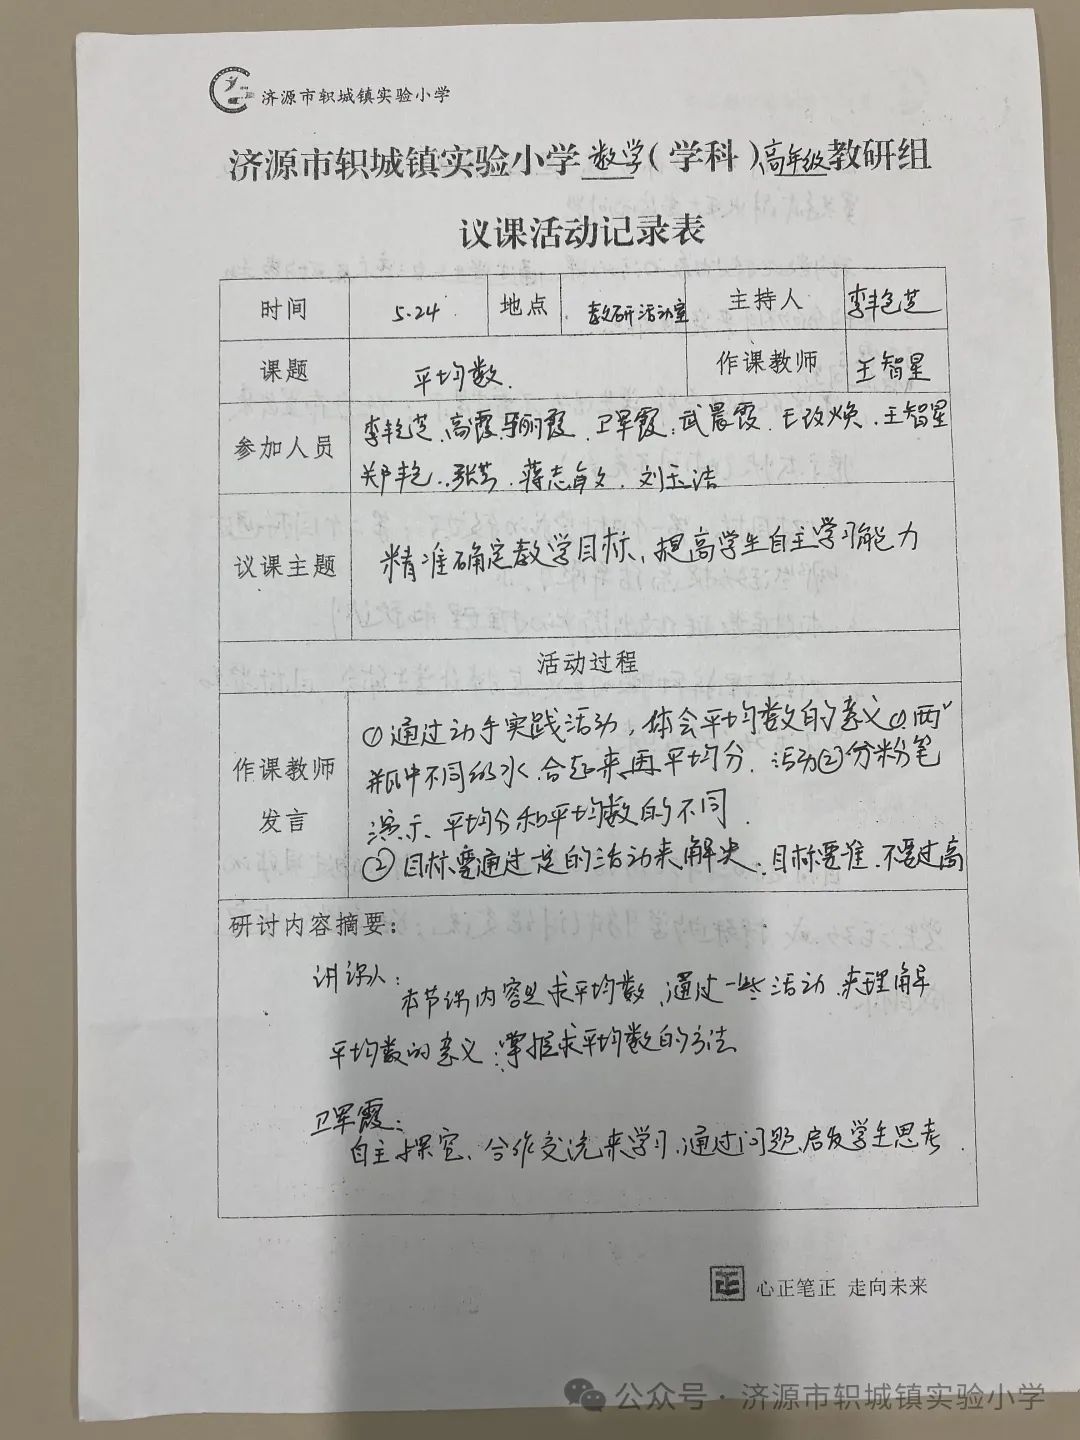 济源市轵城镇实验小学
济源市轵城镇实验小学 数学(学科)高年级教研组
议课活动记录表
时间 5.24 地点 教研活动室 主持人 李艳芝
课题 平均数. 作课教师 王智星
参加人员 李艳芝、高霞、丽霞、卫军霞、武晨霞、王改焕、王智星
郑艳、张芳、蒋志敏、刘玉洁
议课主题 精准确定教学目标、提高学生自主学习能力
活动过程
作课教师发言 ①通过动手实践活动,体会平均数的意义①.两
瓶中不同的水,合起来再平均分.活动②分粉笔
演示、平均分和平均数的不同.
②目标要通过一定的活动来解决.目标要准,不要过高
研讨内容摘要:
讲课人:
本节课内容是求平均数,通过一些活动,来理解
平均数的意义;掌握求平均数的方法
卫军霞:
自主探究、合作交流来学习.通过问题,启发学生思考.
正 心正笔正 走向未来
公众号·济源市轵城镇实验小学